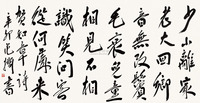 少小離家
老大回鄉
音無改鬢
毛衰兒童
相見不相
識笑問客
從何處來
賀知章詩